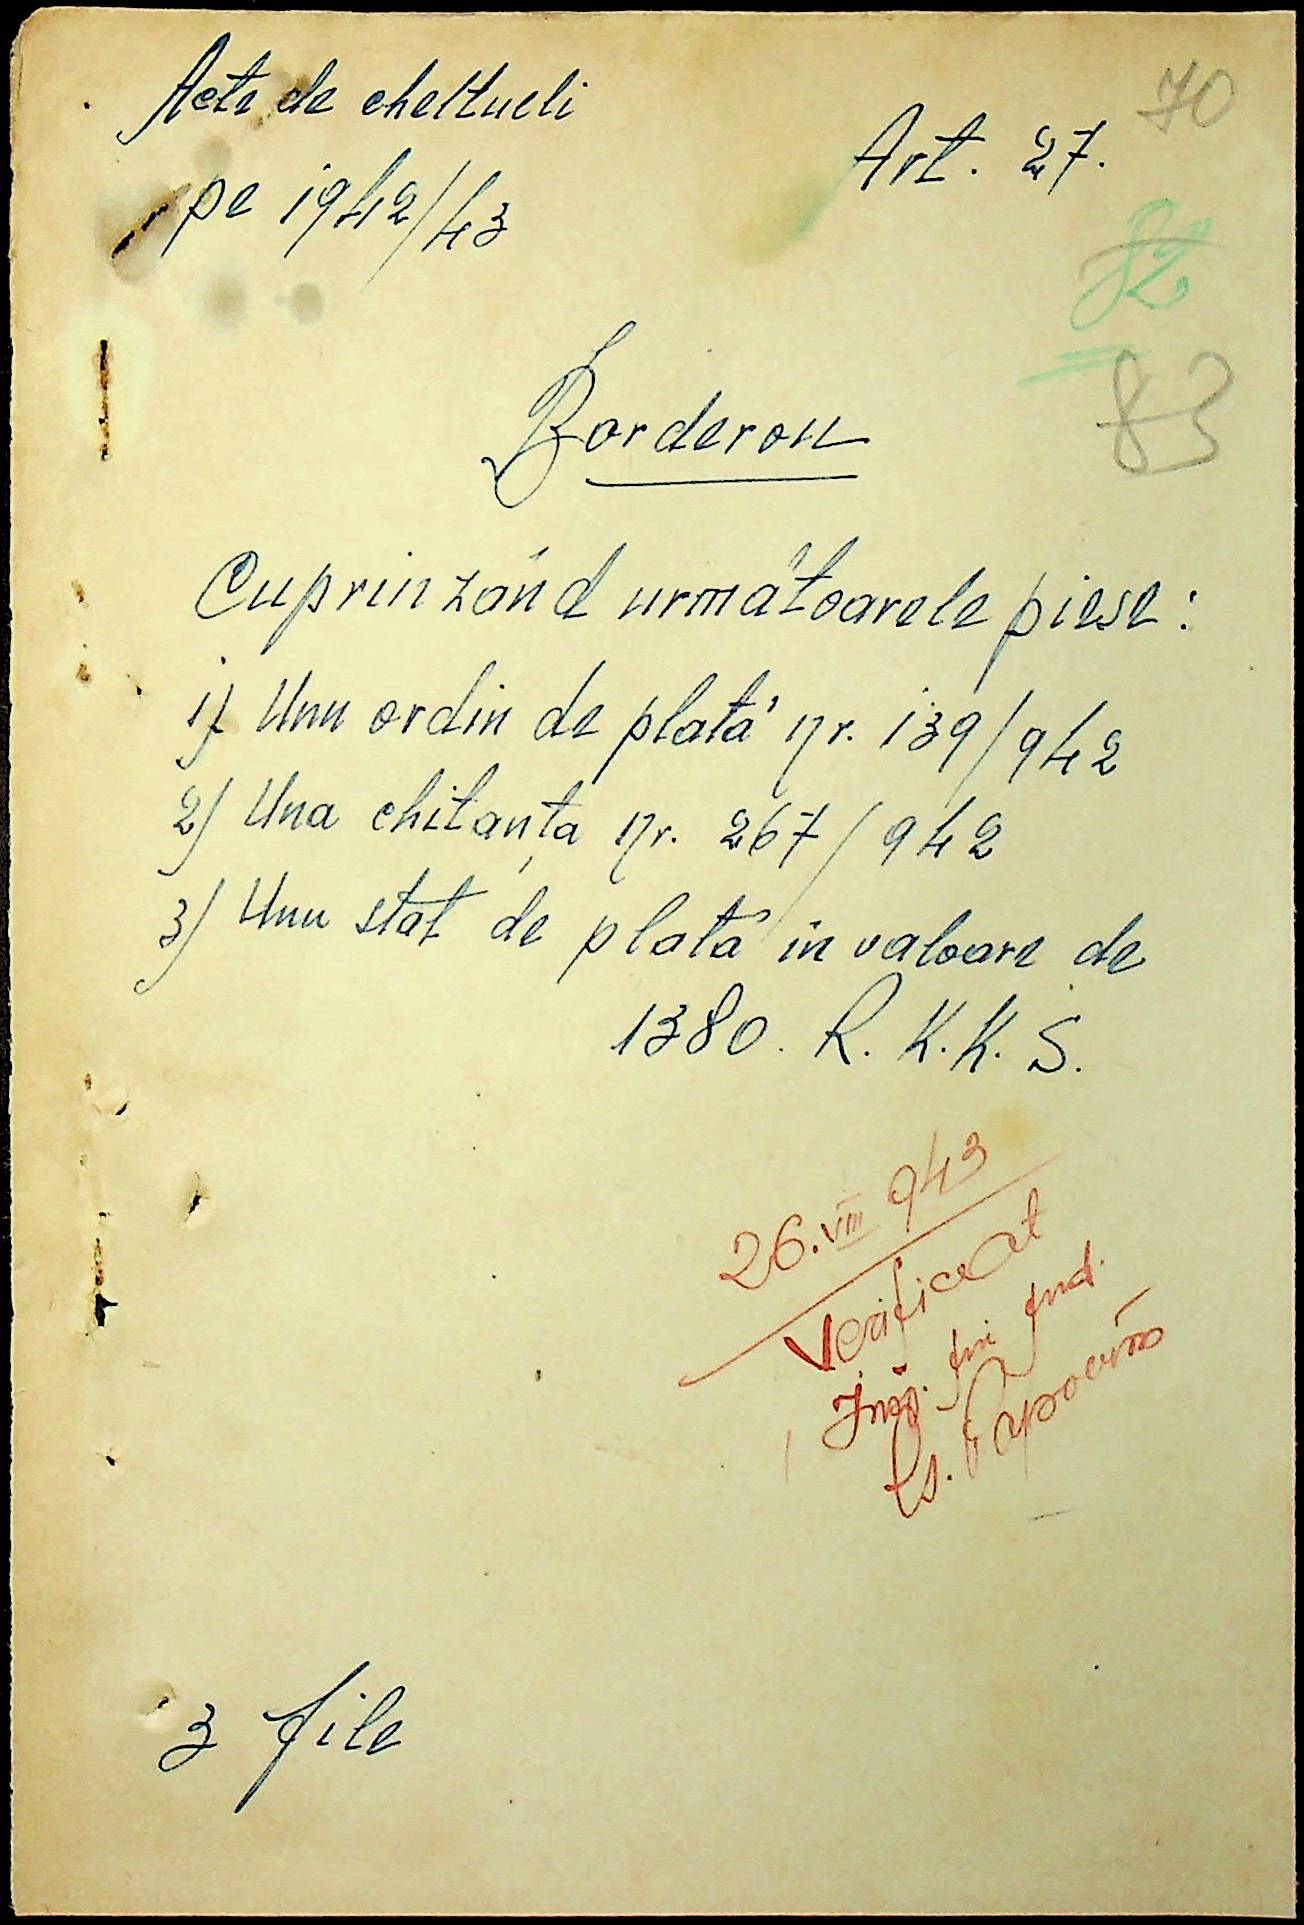 70
Acte de cheltueli
Art. 27.
pe 1942/43
82
83
Borderou
Cuprinzând următoarele piese:
1) Unu ordin de plată nr. 139/942
2) Una chitanța nr. 267/942
3) Unu stat de plată in valoare de
1380. R. K. K. S.
26.VIII 943
Verificat
Insp. fin jud.
3 file